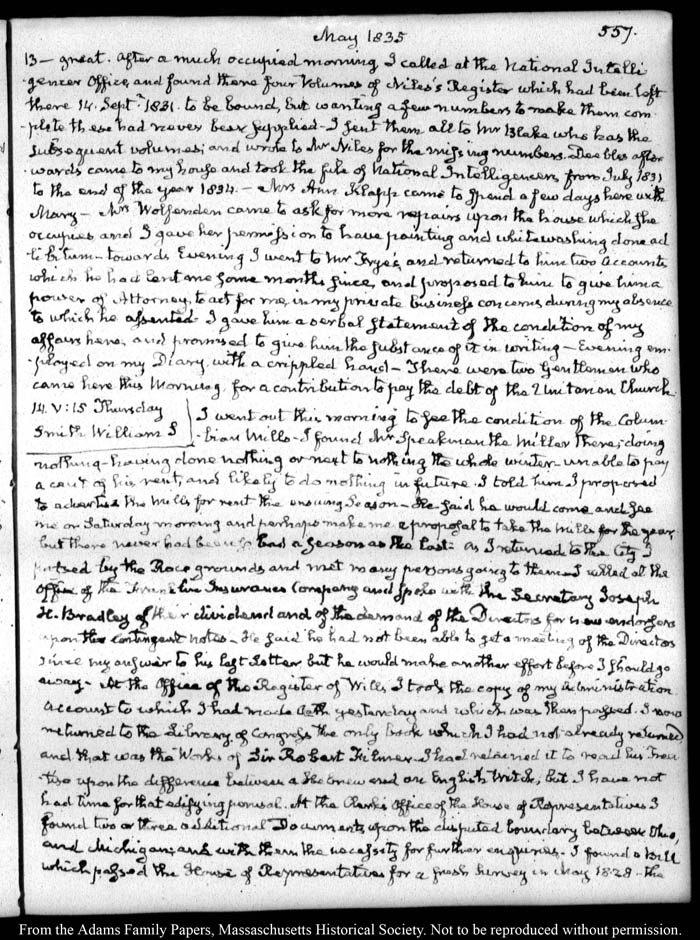 May 1835
557.
13 — great. After a much occupied morning I called at the National Intelli
gencer Office, and found there four Volumes of Niles's Register which had been left
there 14. Septr. 1831. to be bound, but wanting a few numbers to make them com-
plete these had never been supplied — I sent them all to Mr Blake who has the
subsequent volumes; and wrote to Mr Niles for the missing numbers. after
wards came to my house and took the file of National Intelligencers from July 1831
to the end of the year 1834. — Mrs Ann Klapp came to spend a few days here with
Mary — Mrs Wolfenden came to ask for more repairs upon the house which she
occupies and I gave her permission to have painting and whitewashing done ad
libitum — towards Evening I went to Mr Frye's and returned to him two Accounts
which he had lent me some months since, and proposed to him to give him a
power of Attorney, to act for me, in my private business concerns during my absence
to which he assented. I gave him a verbal statement of the condition of my
affairs here, and promised to give him the substance of it in writing — Evening em-
ployed on my Diary, with a crippled hand — There were two Gentlemen who
came here this Morning for a contribution to pay the debt of the Unitarian Church.
14. V: 15 Thursday
Smith William S
I went out this morning to see the condition of the Colum-
bian Mills. I found Mr Speakman the Miller there; doing
nothing — having done nothing or next to nothing the whole winter — unable to pay
a cent of his rent, and likely to do nothing in future. I told him I proposed
to advertise the Mills for rent the ensuing Season — He said he would come and see
me on Saturday morning and perhaps make me a proposal to take the Mills for the year
but there never had been so bad a Season as the last. As I returned to the City I
passed by the Race grounds and met many persons going to them — I called at the
Office of the Franklin Insurance Company and spoke with the Secretary Joseph
H. Bradley of their dividend and of the demand of the Directors for new endorsers
upon the contingent notes — He said he had not been able to get a meeting of the Directors
since my answer to his last Letter but he would make another effort before I should go
away — At the Office of the Register of Wills I took the copy of my Administration
Account to which I had made Oath yesterday and which was then passed. I now
returned to the Library of Congress the only book which I had not already returned
and that was the Works of Sir Robert Filmer. I had retained it to read his Trea
tise upon the difference between a Hebrew and an English Witch, but I have not
had time for that edifying perusal. At the Clerk's Office of the House of Representatives I
found two or three additional Documents upon the disputed boundary between Ohio,
and Michigan; and with them the necessity for further enquiries. I found a Bill
which passed the House of Representatives for a fresh survey in May 1828 — the
From the Adams Family Papers, Massachusetts Historical Society. Not to be reproduced without permission.